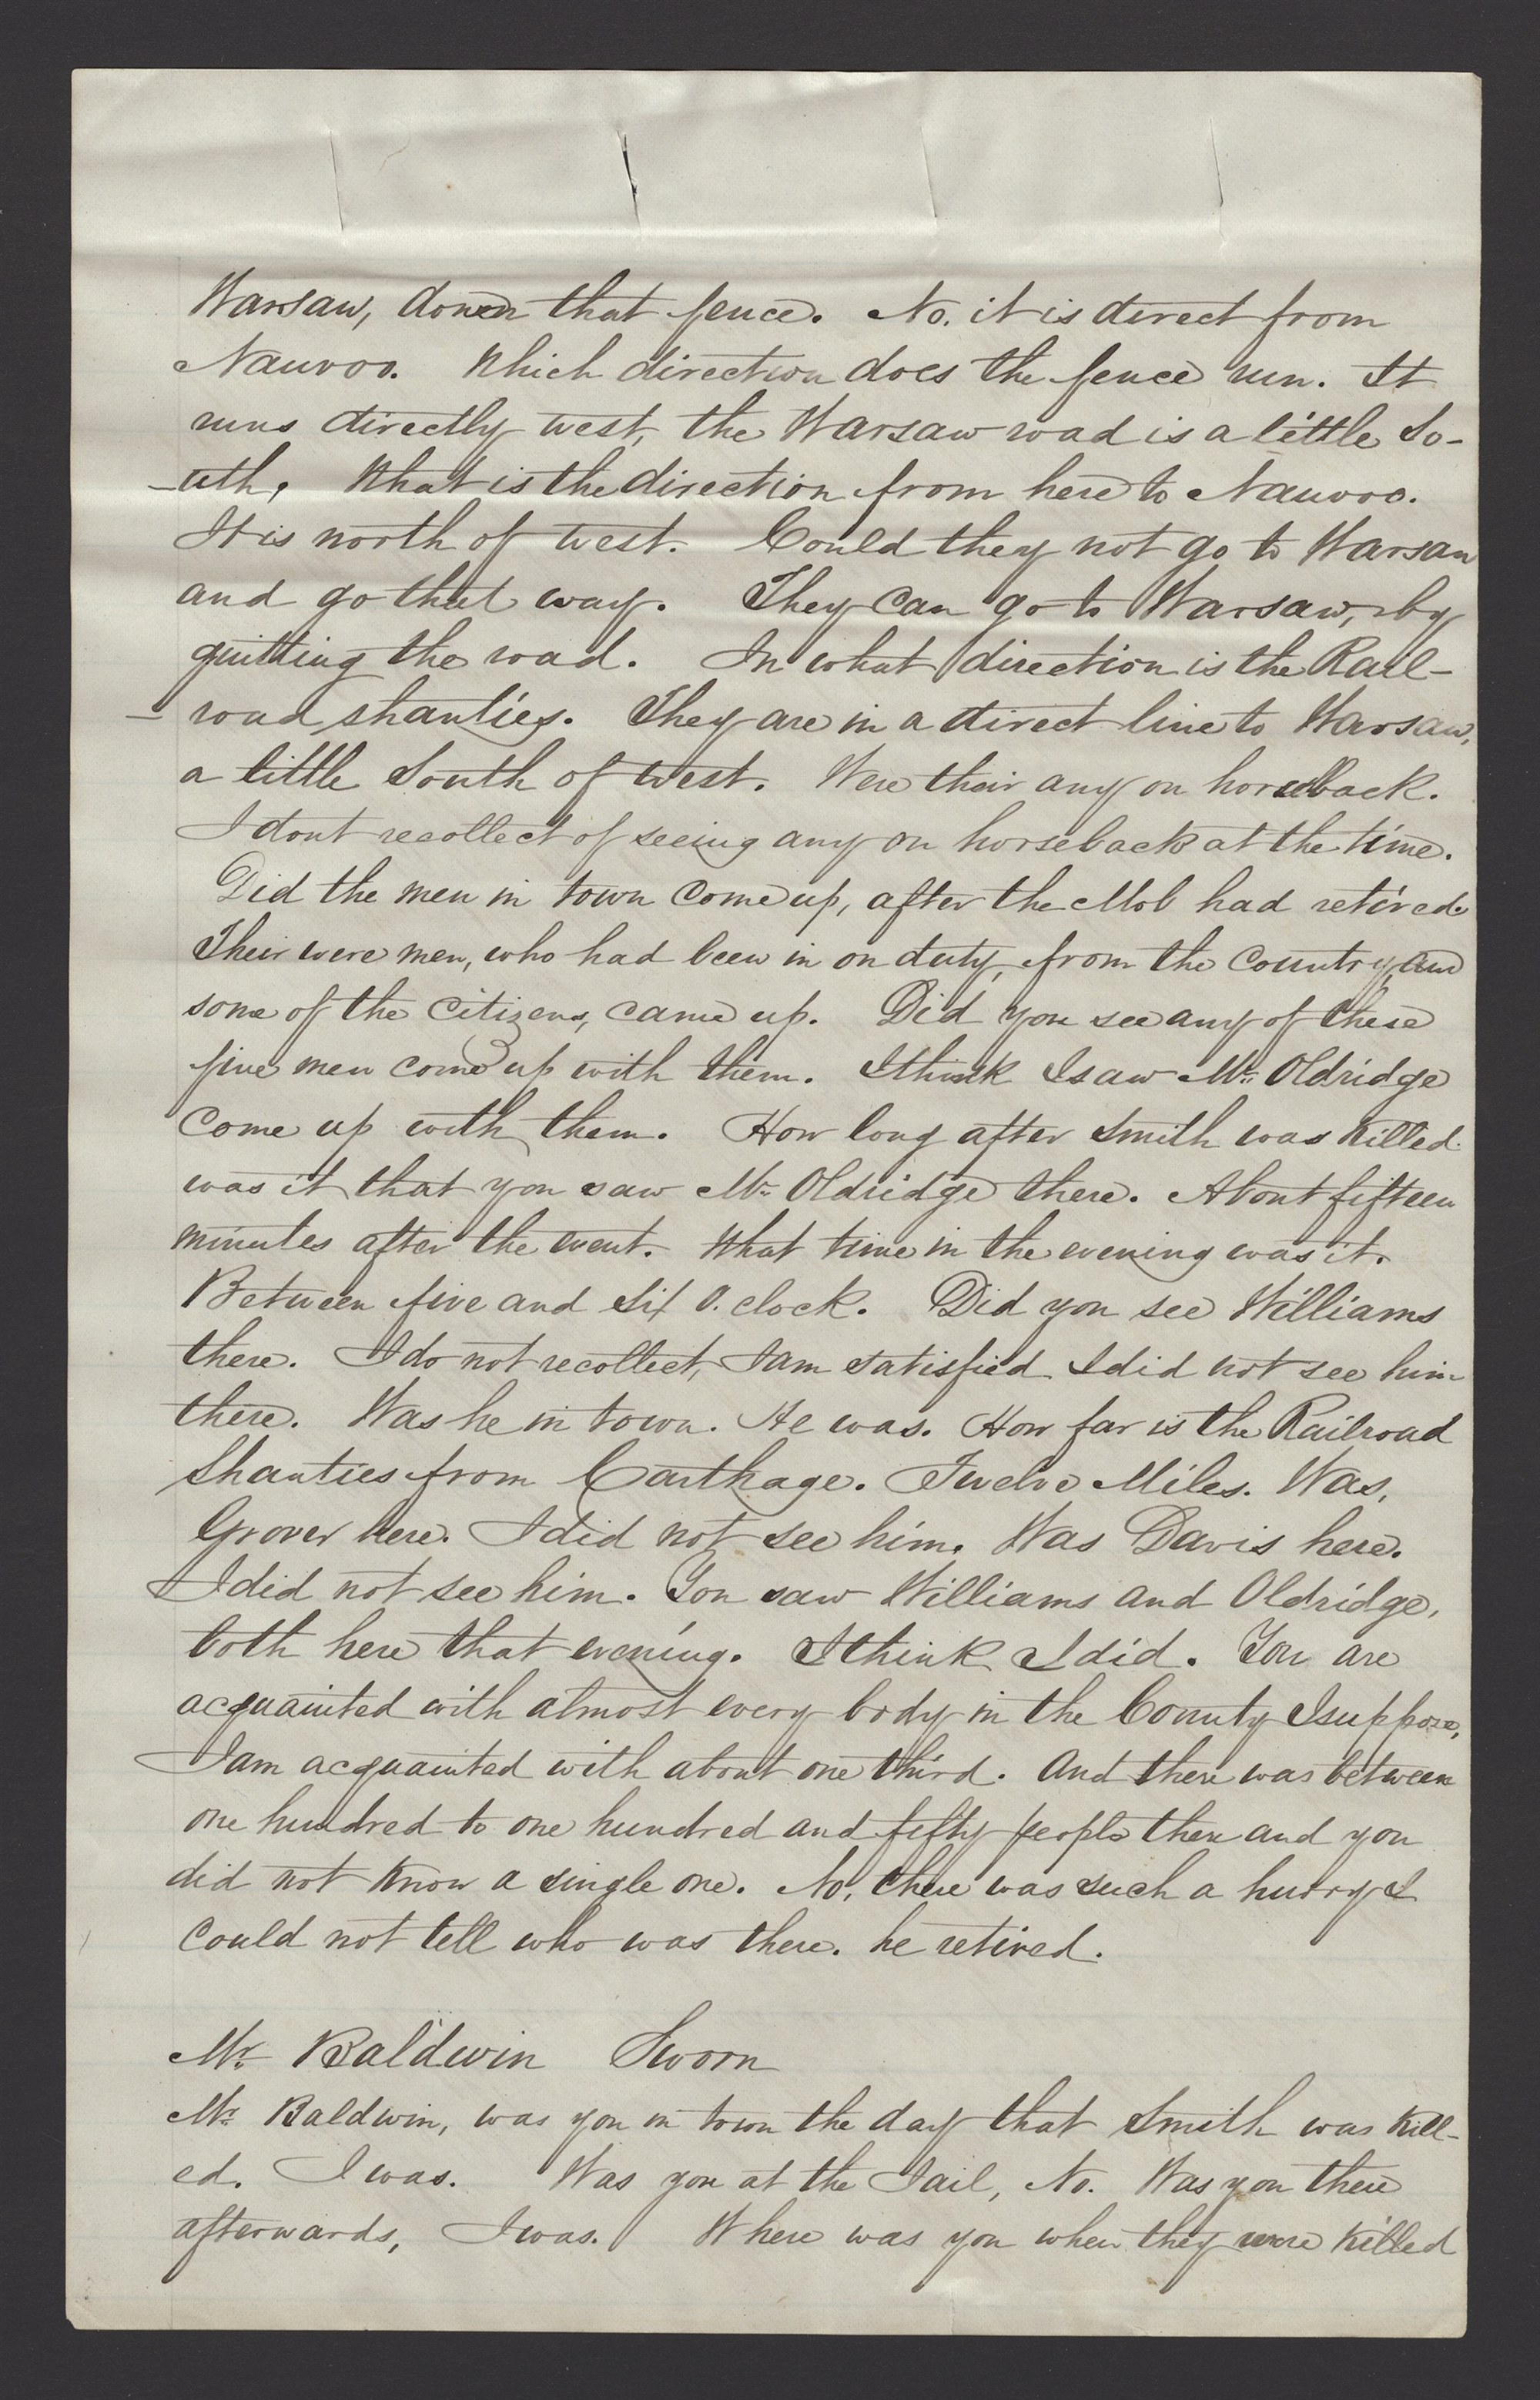 Warsaw, down that fence. No. it is direct from
Nauvoo. Which direction does the fence run. It
runs directly west, the Warsaw road is a little So-
-uth, What is the direction from here to Nauvoo.
It is north of west. Could they not go to Warsaw
and go that way. They can go to Warsaw, by
quitting the road. In what direction is the Rail-
- road shanties. They are in a direct line to Warsaw,
a little South of west. Were their any on horseback.
I dont recollect of seeing any on horseback at the time.
Did the men in town come up, after the Mob had retired.
Their were men, who had been in on duty, from the country, and
some of the citizens, came up. Did you see any of these
five men come up with them. I think I saw Mr. Oldridge
come up with them. How long after Smith was killed
was it that you saw Mr. Oldridge there. About fifteen
minutes after the event. What time in the evening was it.
Between five and Six O. clock. Did you see Williams
there. I do not recollect, I am satisfied I did not see him
there. Was he in town. He was. How far is the Railroad
Shanties from Carthage. Twelve Miles. Was,
Grover here. I did not see him. Was Davis here.
I did not see him. You saw Williams and Oldridge,
both here that evening. I think I did. You are
acquainted with almost every body in the County I suppose,
I am acquainted with about one third. And there was between
one hundred to one hundred and fifty people there and you
did not know a single one. No, there was such a hurry I
could not tell who was there. he retired.
Mr. Baldwin Sworn
Mr. Baldwin, was you in town the day that Smith was kill-
ed. I was. Was you at the Jail, No. Was you there
afterwards, I was. Where was you when they were killed